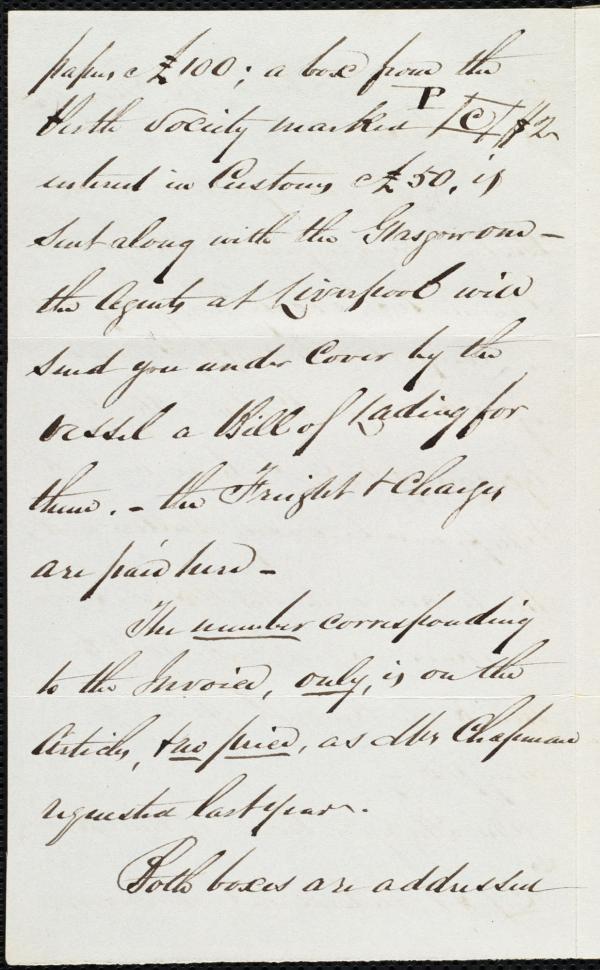 papers c £100; a box from the
Perth Society marked P C # 2
entered in Customs c £50, is
sent along with the Glasgow one –
the Agents at Liverpool will
send you under Cover by the
vessel a Bill of Lading for
them. – the Freight & Charges
are paid here –
The number corresponding
to the Invoice, only, is on the
Articles, & no price, as Mrs Chapman
requested last year.
Both boxes are addressed